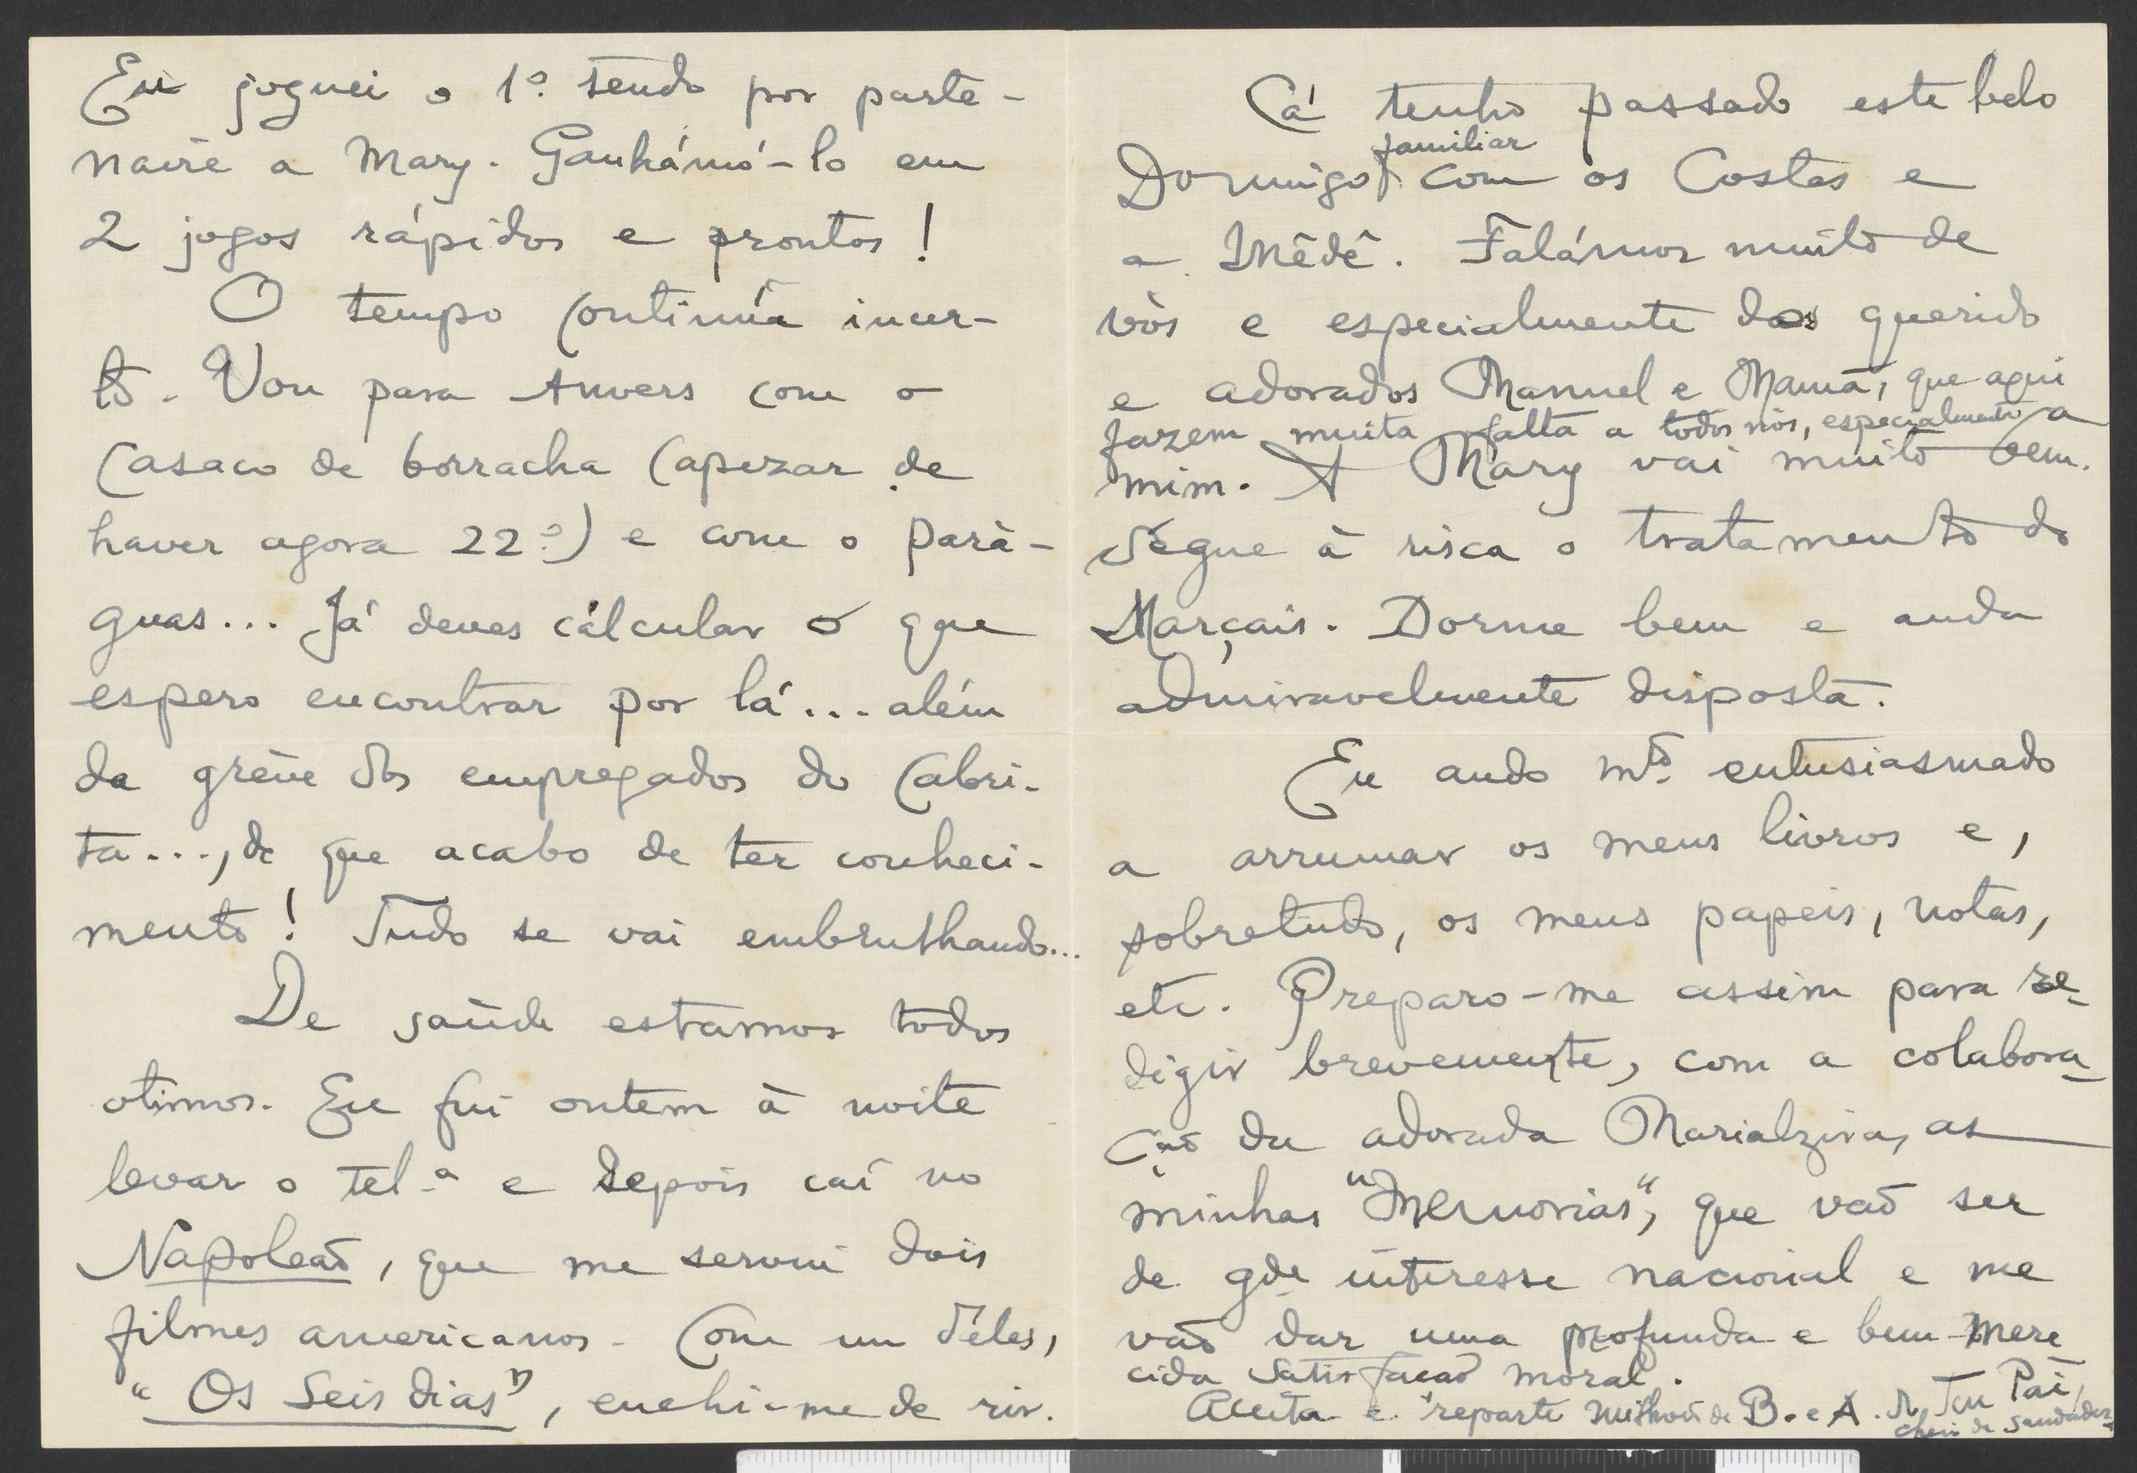 Eu joguei o 1º. sendo por parte-
naire a Mary. Ganhámó-lo em
2 jogos rápidos e prontos!
O tempo continúa incer-
to. Vou para Anvers com o
casaco de borracha (apezar de
haver agora 22º.) e com o pará-
guas... Já deves cálcular o que
espero encontrar por lá... além
da gréve dos empregados do Cabri-
ta..., de que acabo de ter conheci-
mento! Tudo se vai embrulhando...
De saúde estamos todos
otimos. Eu fui ontem à noite
levar o tel.ª e depois caí no
Napoleão, que me serviu dois
filmes americanos. Com um dêles,
"Os Seis dias", enchi-me de rir.
Cá tenho passado este belo
Domingo familiar com os Costas e
a Mêdê. Falámos muito de
vós e especialmente dos querido
e adorados Manuel e Mamã, que aqui
fazem muita falta a todos nós, especialmente a
mim. A Mary vai muito bem.
Segue à risca o tratamento do
Marçais. Dorme bem e anda
admiravelmente disposta.
Eu ando mtº. entusiasmado
a arrumar os meus livros e,
sobretudo, os meus papeis, notas,
etc. Preparo-me assim para re-
digir brevemente, com a colabora-
ção da adorada Marialzira, as
minhas "Memorias", que vão ser
de gde interesse nacional e me
vão dar uma profunda e bem mere
cida satisfação moral.
Aceita e reparte milhões de B. e A. do Teu Pai,
cheio de saudades